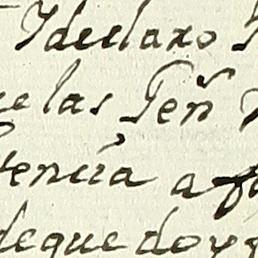 Ydeclaro
e las Señ
tencia a
deque doy